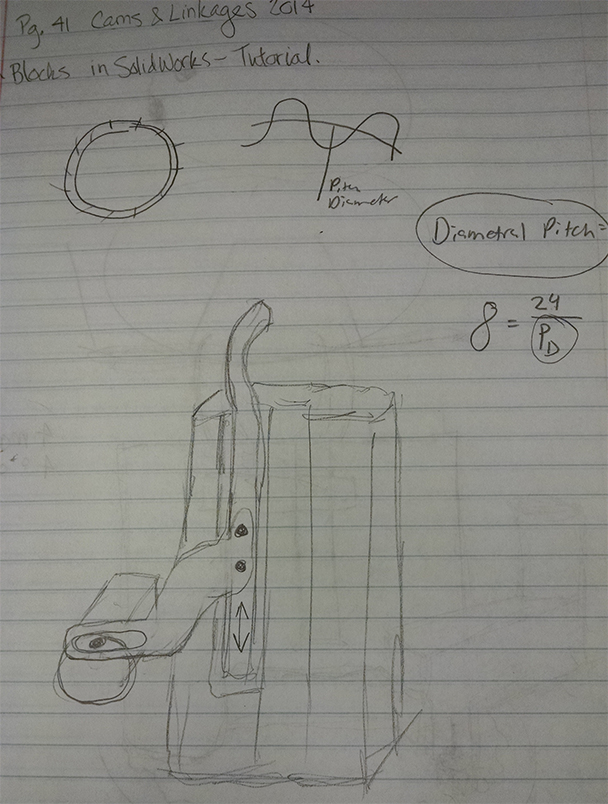 Pg. 41 Cams & Linkages 2014
Blocks in SolidWorks - Tutorial.
Pitch
Diameter
Diametral Pitch =
8 = 24
P_D